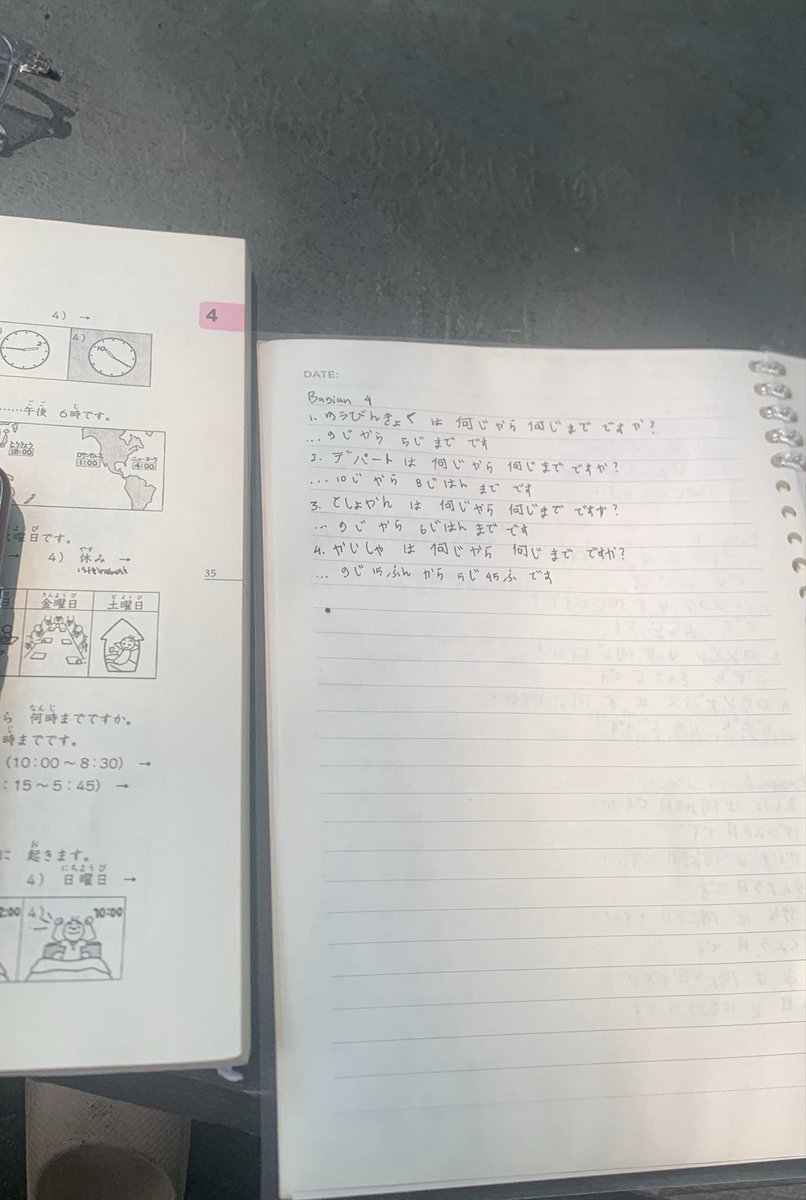 4) →
4
2
4)
10
……午後 6時です。
とうきょう
18:00
ロサンゼルス
1:00
ニューヨーク
4:00
曜日です。
→ 4) 休み →
35
日 金曜日 土曜日
ら 何時までですか。
時までです。
(10:00～8:30) →
:15～5:45) →
に 起きます。
4) 日曜日 →
2:00 4) 10:00
DATE:
Bagian 4
1. ゆうびんきょく は 何じから 何じまで ですか?
... 9じから 5じまで です
2. デパート は 何じから 何じまで ですか?
... 10じ から 8じはん まで です
3. としょかん は 何じから 何じまで ですか?
... 9じ から 6じはんまで です
4. かいしゃ は 何じから 何じまで ですか?
... 9じ 15ふん から 5じ 45ふ です